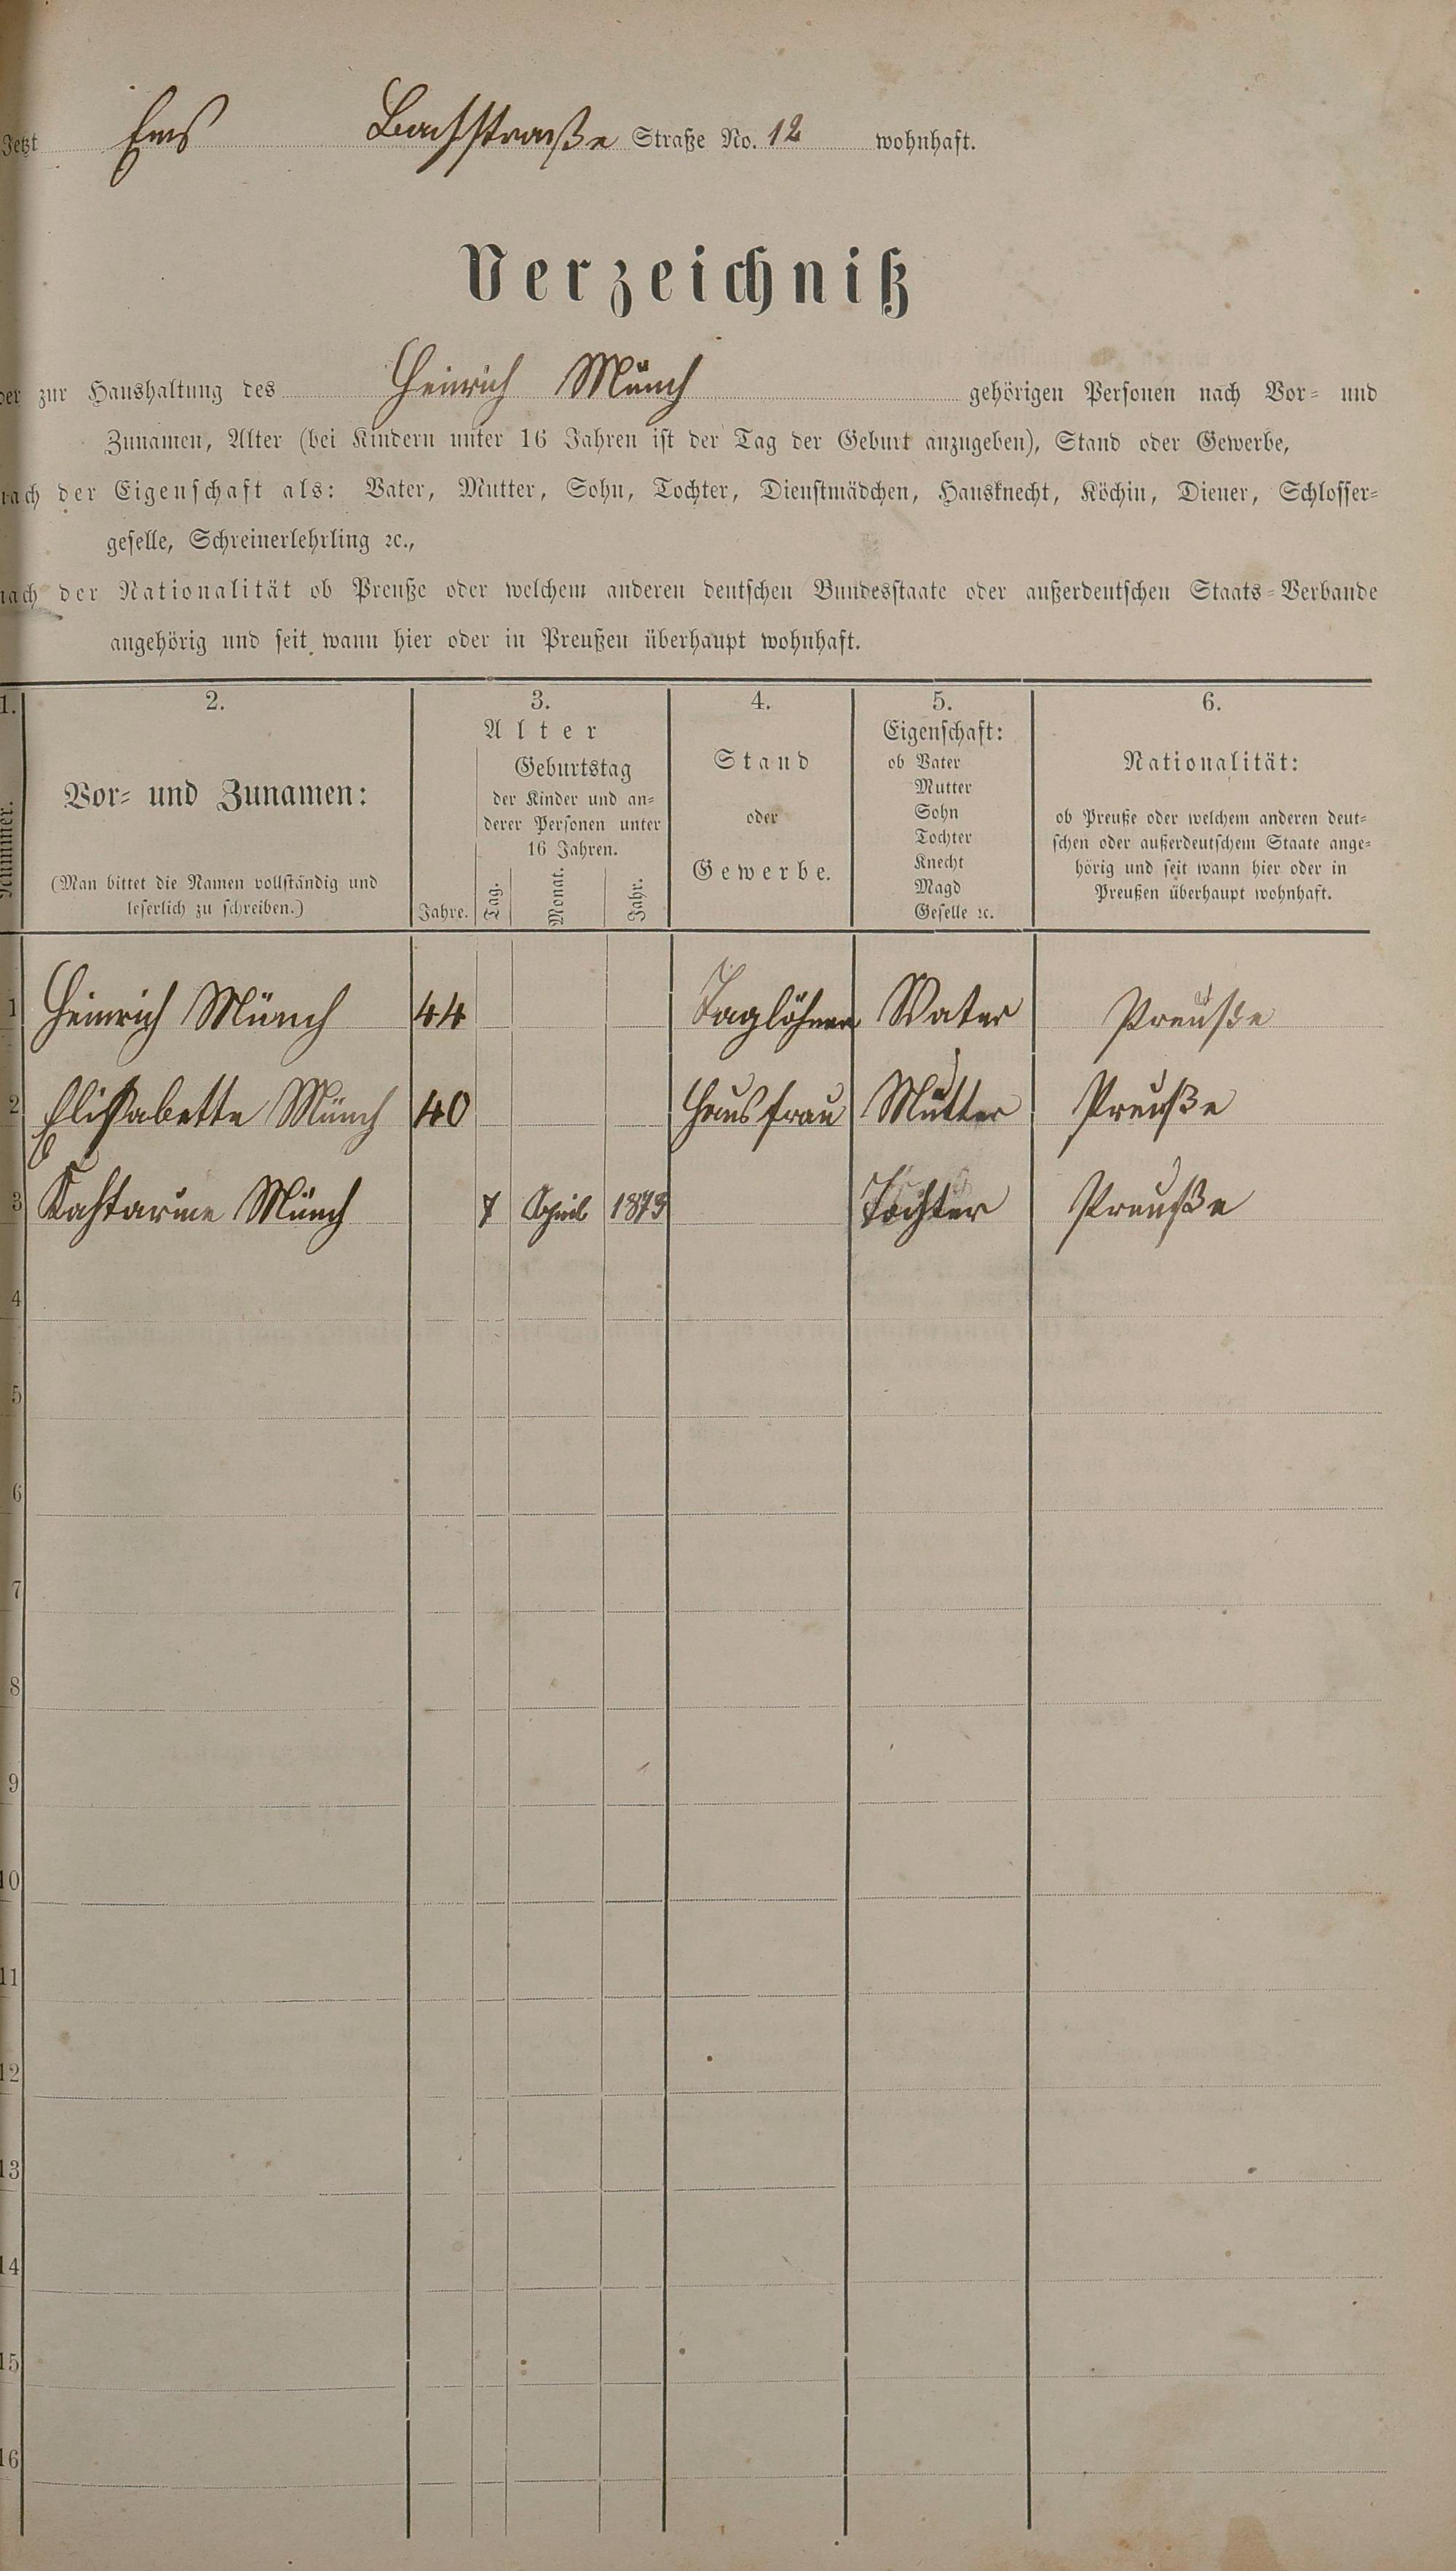 Jetzt Ems Bachstraße Straße No. 12 wohnhaft.
Verzeichniß
der zur Haushaltung des Heinrich Münch gehörigen Personen nach Vor- und
Zunamen, Alter (bei Kindern unter 16 Jahren ist der Tag der Geburt anzugeben), Stand oder Gewerbe,
nach der Eigenschaft als: Vater, Mutter, Sohn, Tochter, Dienstmädchen, Hausknecht, Köchin, Diener, Schlosser-
geselle, Schreinerlehrling ꝛc.,
nach der Nationalität ob Preuße oder welchem anderen deutschen Bundesstaate oder außerdeutschen Staats-Verbande
angehörig und seit wann hier oder in Preußen überhaupt wohnhaft.
1. 2. 3. 4. 5. 6.
Nummer.
Vor- und Zunamen:
(Man bittet die Namen vollständig und
leserlich zu schreiben.)
Alter
Jahre.
Geburtstag
der Kinder und an-
derer Personen unter
16 Jahren.
Tag. Monat. Jahr.
Stand
oder
Gewerbe.
Eigenschaft:
ob Vater
Mutter
Sohn
Tochter
Knecht
Magd
Geselle ꝛc.
Nationalität:
ob Preuße oder welchem anderen deut-
schen oder außerdeutschem Staate ange-
hörig und seit wann hier oder in
Preußen überhaupt wohnhaft.
1 Heinrich Münch 44 Taglöhner Vater Preuße
2 Elisabette Münch 40 Hausfrau Mutter Preuße
3 Kahtarine Münch 7 April 1873 Tochter Preuße
4
5
6
7
8
9
10
11
12
13
14
15
16